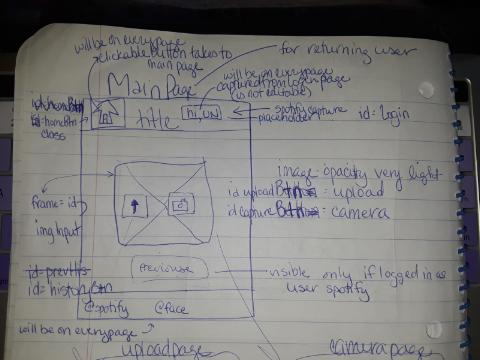 will be on every page
clickable button takes to
main page
for returning user
Main Page
will be on every page
captured from login page
(is not editable)
id: homeBtn
class
title
hi, UN
spotify capture
placeholder
id = login
image opacity very light
id uploadBtn = upload
id captureBtn = camera
frame = id
img Input
previous
id = prevHis
id = historyBtn
visible only if logged in as
user spotify
@spotify @face
will be on every page
upload page
camera page